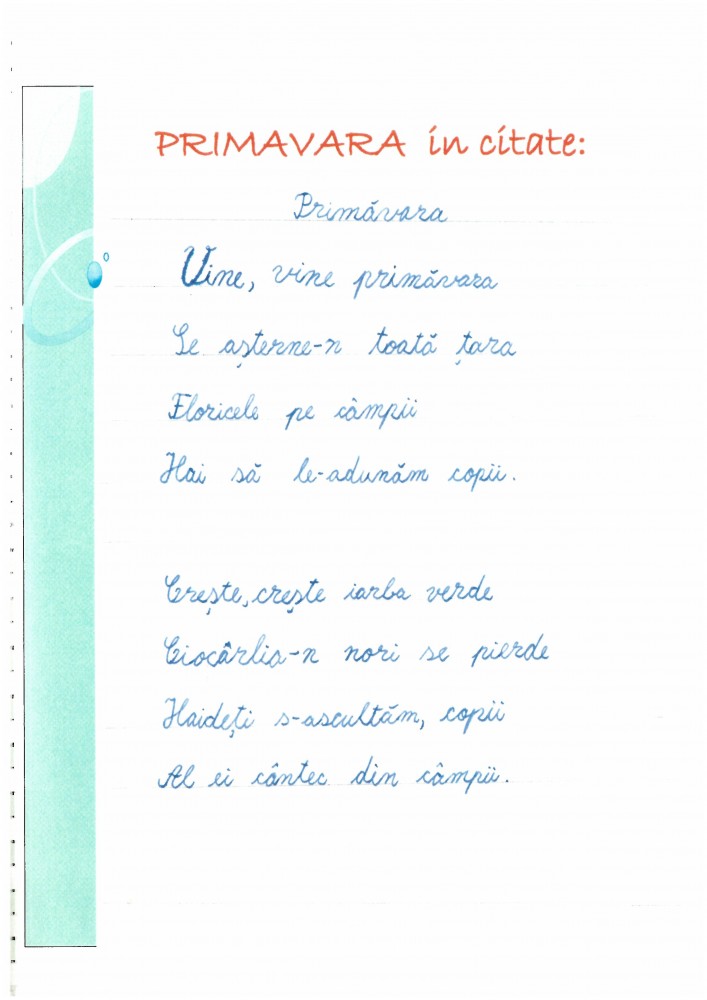 PRIMAVARA in citate:
Primăvara
Vine, vine primăvara
Se așterne-n toată țara
Floricele pe câmpii
Hai să le-adunăm copii.
Crește, crește iarba verde
Ciocârlia-n nori se pierde
Haideți s-ascultăm, copii
Al ei cântec din câmpii.